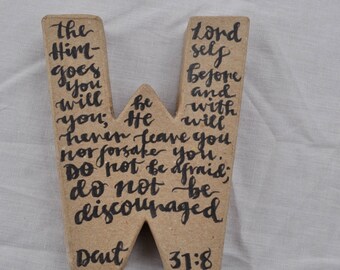 The Lord
Him- self
goes before
you and
will be with
you; He will
never leave you
nor forsake you.
Do not be afraid;
do not be
discouraged
Deut 31:8